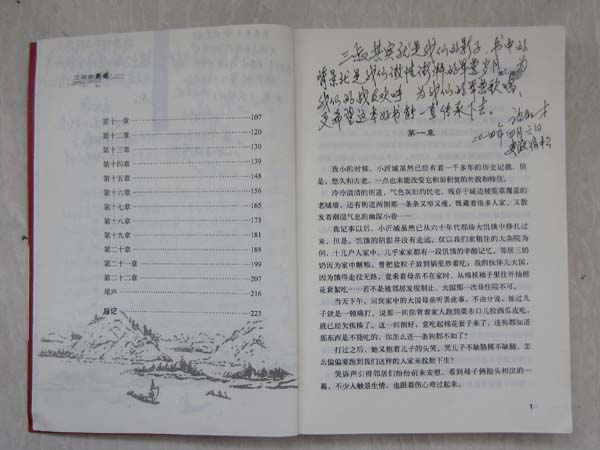 三叔的
第十一章 107
第十二章 120
第十三章 130
第十四章 139
第十五章 148
第十六章 156
第十七章 165
第十八章 173
第十九章 181
第二十章 188
第二十一章 199
第二十二章 207
尾声 216
后记 223
三叔其实就是我们的影子,书中的
背景也是我们激情澎湃的青春岁月。为
我们的战友欢呼,为我们的青春歌唱,
更希望这本好书能一直传承下去。
二〇一四年四月六日
第一章
我小的时候,小沂城虽然已经有着一千多年的历史记载,但
是,悠久和古老,一点也未能改变它积弱积贫的外貌和特征。
冷冷清清的街道,气色灰旧的民宅,残存于城边被荒草覆盖的
老城墙,还有街道两侧那一条条又窄又瘦,既藏着很多人家,又散
发着潮湿气息的幽深小巷……
我记事以后,小沂城虽然已从六十年代那场大饥饿中挣扎过
来,但是,饥饿的阴影并没有走远。仅以我们家租住的大杂院为
例,十几户人家中,几乎家家都有一段饥饿的辛酸记忆。邻居三嫂
奶因为家中断粮,曾把盐粒子放到锅里炒着吃;我的伙伴儿大国,
因为饿得走投无路,竟乘着母亲不在家时,从棉袄袖子里往外抽棉
花套絮吃……若不是被邻居发现制止,大国那一次非住院不可。
当天下午,回到家中的大国母亲听罢此事,不由分说,扯过儿
子就是一顿痛打。说那一回你背着家人跑到菜市口儿捡西瓜皮吃,
就已经欠揍了。这一回倒好,竟吃起棉花套子来了,连狗都知道
那东西是不能吃的,你怎么连一条狗都不如了?
打过之后,她又抱着儿子的头哭。哭儿子不缺胳膊不缺腿,怎
么偏偏要跑到我们这样的人家来投胎下生?
哭诉声引得邻居们纷纷前来安慰,看到母子俩抱头相泣的一
幕,不少人触景生情,也跟着伤心难过起来。
1